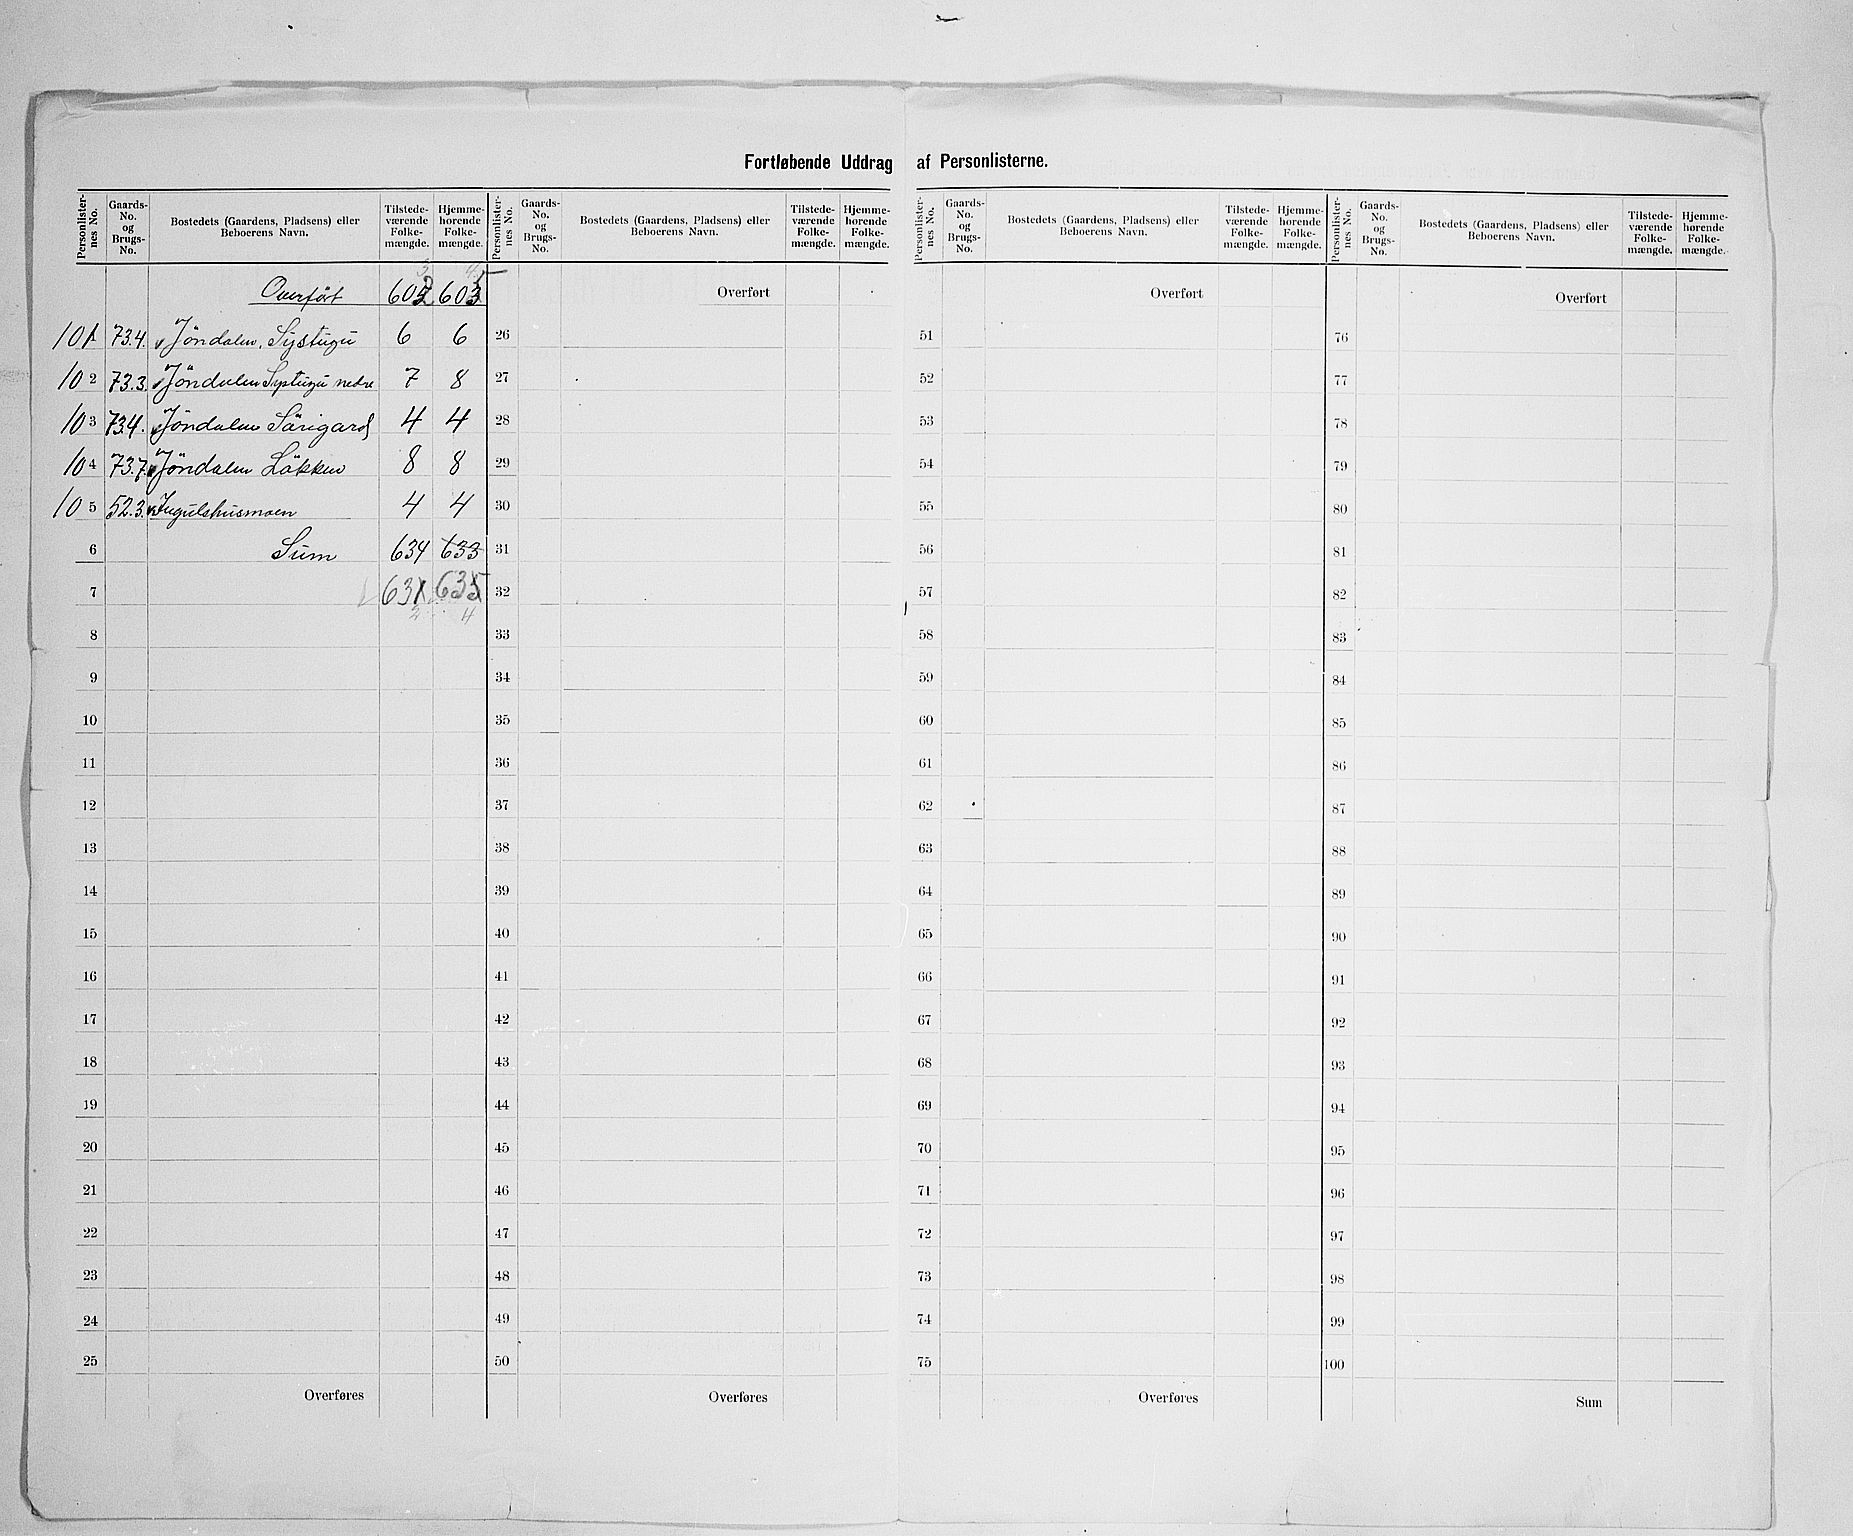 Fortløbende Uddrag af Personlisterne.
Personlister-nes No. | Gaards-No. og Brugs-No. | Bostedets (Gaardens, Pladsens) eller Beboerens Navn. | Tilstede-værende Folke-mængde. | Hjemme-hørende Folke-mængde.
Overført 602 605
101 73.4. Jöndalen, Systugu 6 6
102 73.3. Jöndalen Systugu nedre 7 8
103 73.4. Jöndalen Sörigard 4 4
104 73.7. Jöndalen Løkken 8 8
105 52.3. Ingulshusmoen 4 4
6 Sum 634 633
7 631 635
2 4
8
9
10
11
12
13
14
15
16
17
18
19
20
21
22
23
24
25
Overføres
Personlister-nes No. | Gaards-No. og Brugs-No. | Bostedets (Gaardens, Pladsens) eller Beboerens Navn. | Tilstede-værende Folke-mængde. | Hjemme-hørende Folke-mængde.
Overført
26
27
28
29
30
31
32
33
34
35
36
37
38
39
40
41
42
43
44
45
46
47
48
49
50
Overføres
Personlister-nes No. | Gaards-No. og Brugs-No. | Bostedets (Gaardens, Pladsens) eller Beboerens Navn. | Tilstede-værende Folke-mængde. | Hjemme-hørende Folke-mængde.
Overført
51
52
53
54
55
56
57
58
59
60
61
62
63
64
65
66
67
68
69
70
71
72
73
74
75
Overføres
Personlister-nes No. | Gaards-No. og Brugs-No. | Bostedets (Gaardens, Pladsens) eller Beboerens Navn. | Tilstede-værende Folke-mængde. | Hjemme-hørende Folke-mængde.
Overført
76
77
78
79
80
81
82
83
84
85
86
87
88
89
90
91
92
93
94
95
96
97
98
99
100
Sum